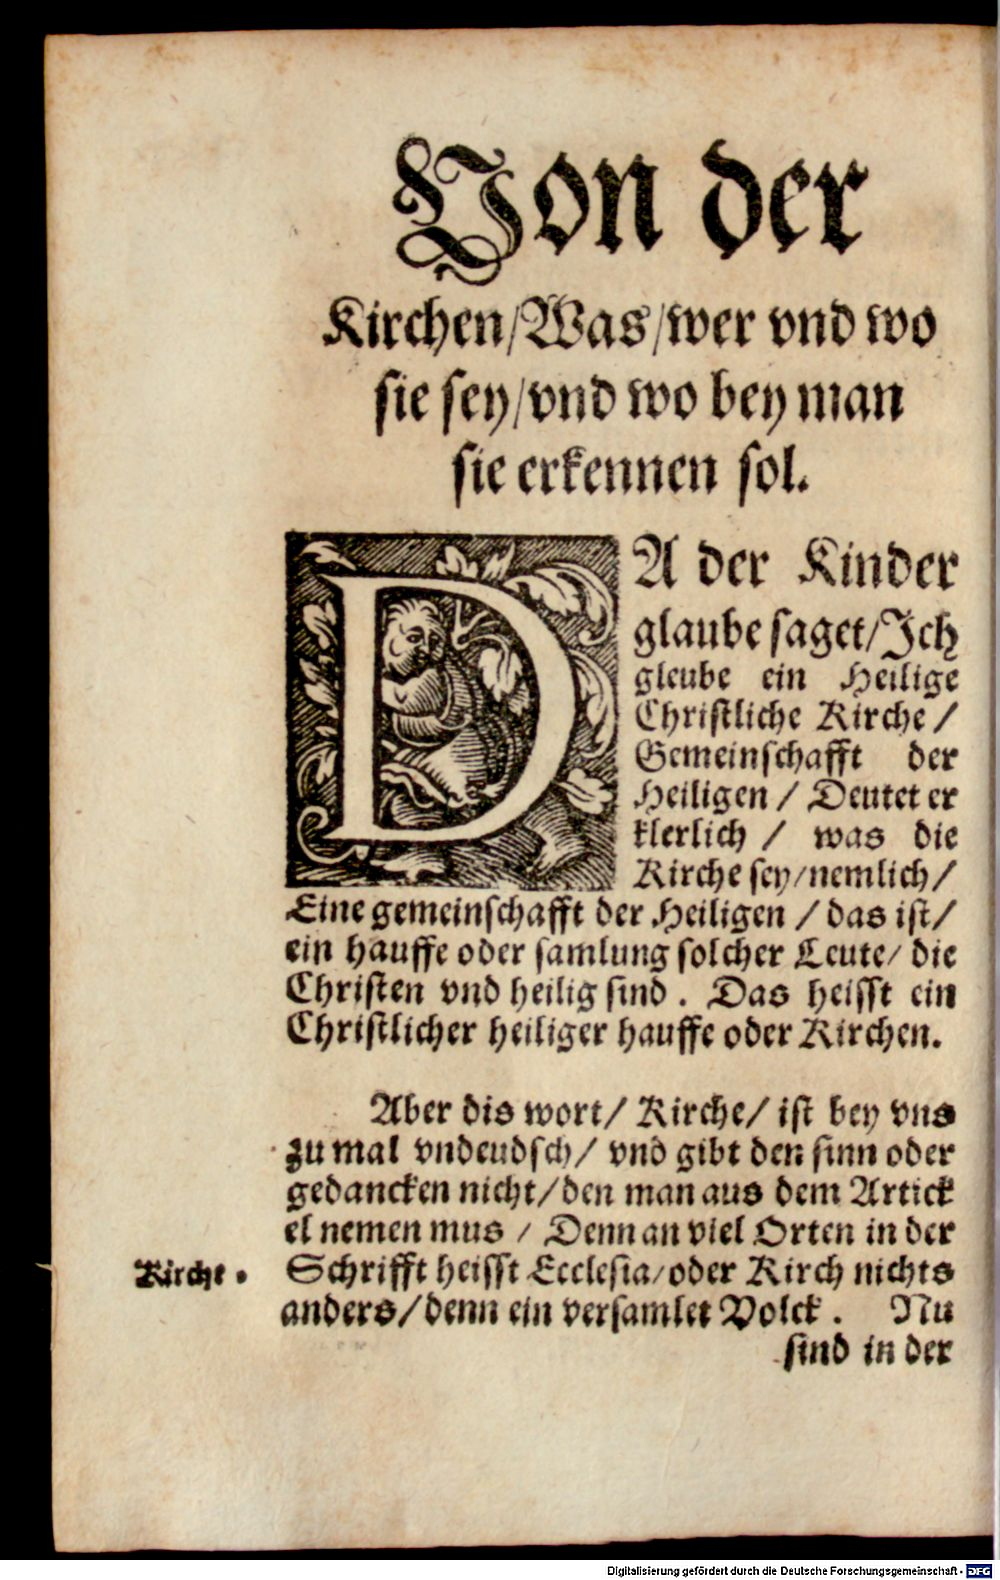 Von der
Kirchen/Was/wer vnd wo
sie sey/vnd wo bey man
sie erkennen sol.
DA der Kinder
glaube saget/Jch
gleube ein Heilige
Christliche Kirche/
Gemeinschafft der
Heiligen/ Deutet er
klerlich/ was die
Kirche sey/nemlich/
Eine gemeinschafft der Heiligen/das ist/
ein hauffe oder samlung solcher Leute/ die
Christen vnd heilig sind. Das heisst ein
Christlicher heiliger hauffe oder Kirchen.
Aber dis wort/ Kirche/ ist bey vns
zu mal vndeudsch/ vnd gibt den sinn oder
gedancken nicht/den man aus dem Artick
el nemen mus/ Denn an viel Orten in der
Kirche.
Schrifft heisst Ecclesia/oder Kirch nichts
anders/denn ein versamlet Volck. Nu
sind in der
Digitalisierung gefördert durch die Deutsche Forschungsgemeinschaft - DFG